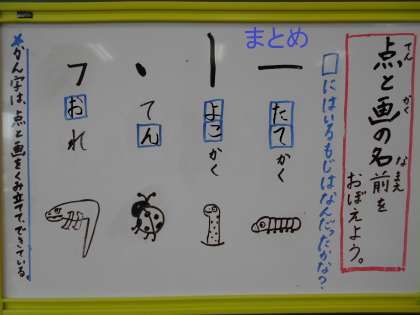 まとめ
てん かく なまえ
点と画の名前を
おぼえよう。
□にはいるもじはなんだったかな?
たてかく
よこかく
てん
おれ
★かん字は、点と画をくみ立てて、できている。